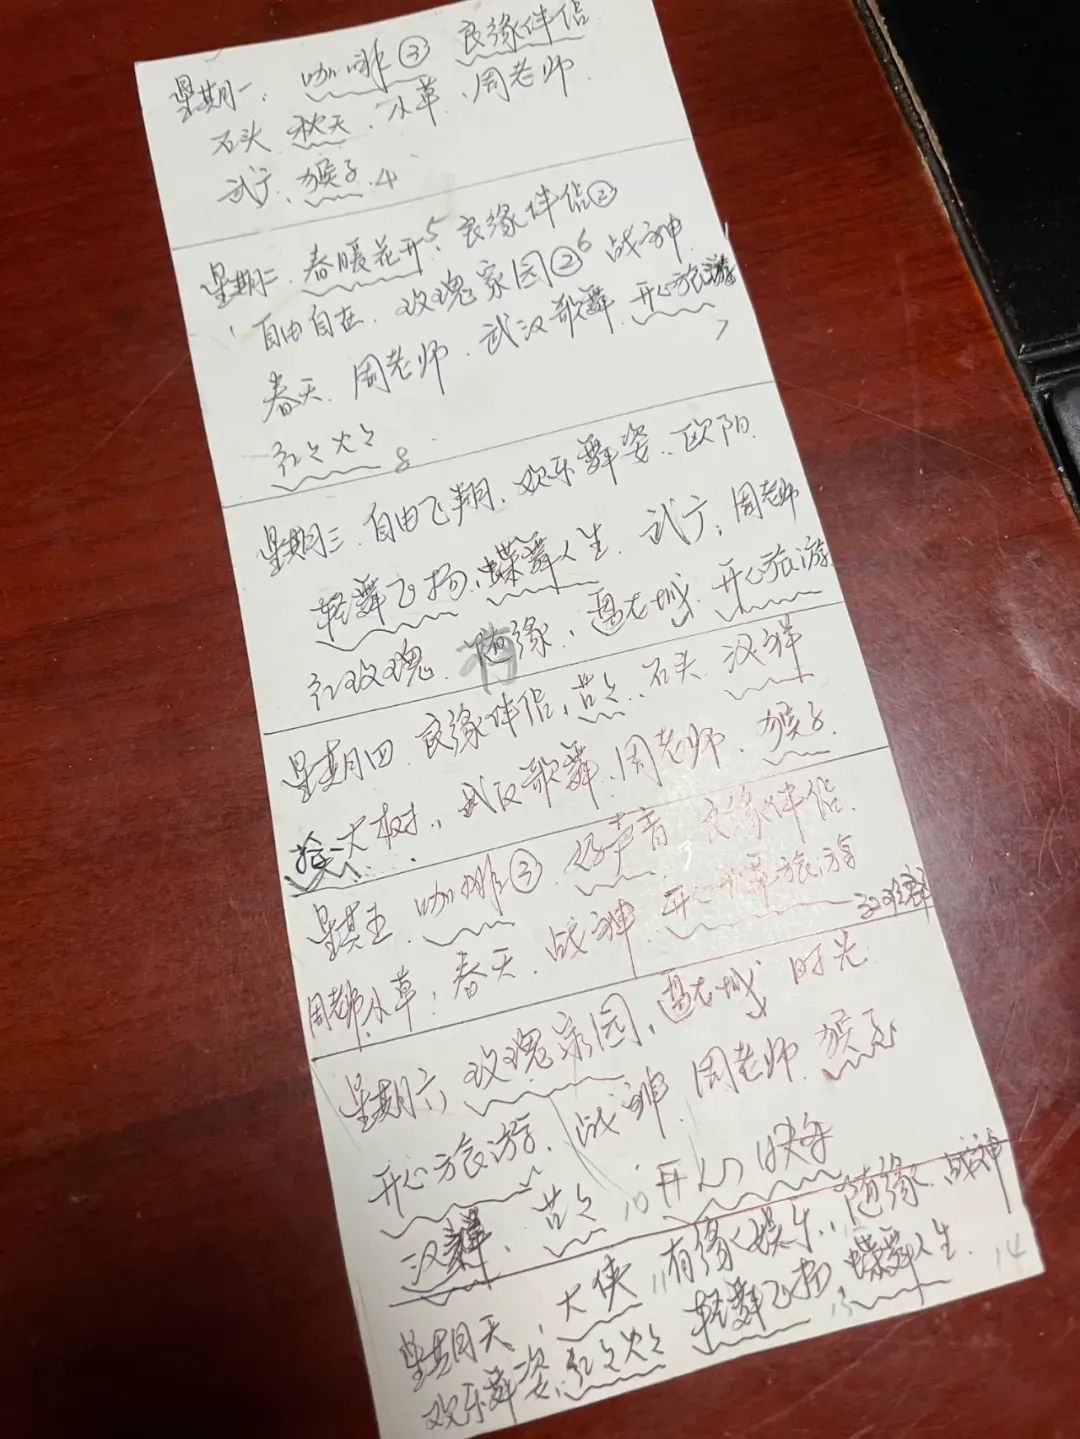 星期一、咖啡③ 良缘伴侣
石头 秋天、小草、周老师
武广、猴子.4
星期二、春暖花开5、良缘伴侣②
自由自在、玫瑰家园②6 战神
春天、周老师、武汉歌舞、开心旅游7
红々火々8
星期三、自由飞翔、欢乐舞姿、欧阳
轻舞飞扬、蝶舞人生、武广、周老师
红玫瑰、随缘、盘龙城、开心旅游
星期四、良缘伴侣、芸々、石头、汉祥
大树、武汉歌舞、周老师、猴子
星其五、咖啡③、好声音 良缘伴侣
周老师、小草、春天、战神、开心旅游
星期六 玫瑰家园、盘龙城 时光
开心旅游、战神、周老师 猴子
汉祥、芸々、10 开心
星期天、大侠、11有缘人娱乐、随缘、战神
欢乐舞姿、红々火々 轻舞飞扬、蝶舞人生、14